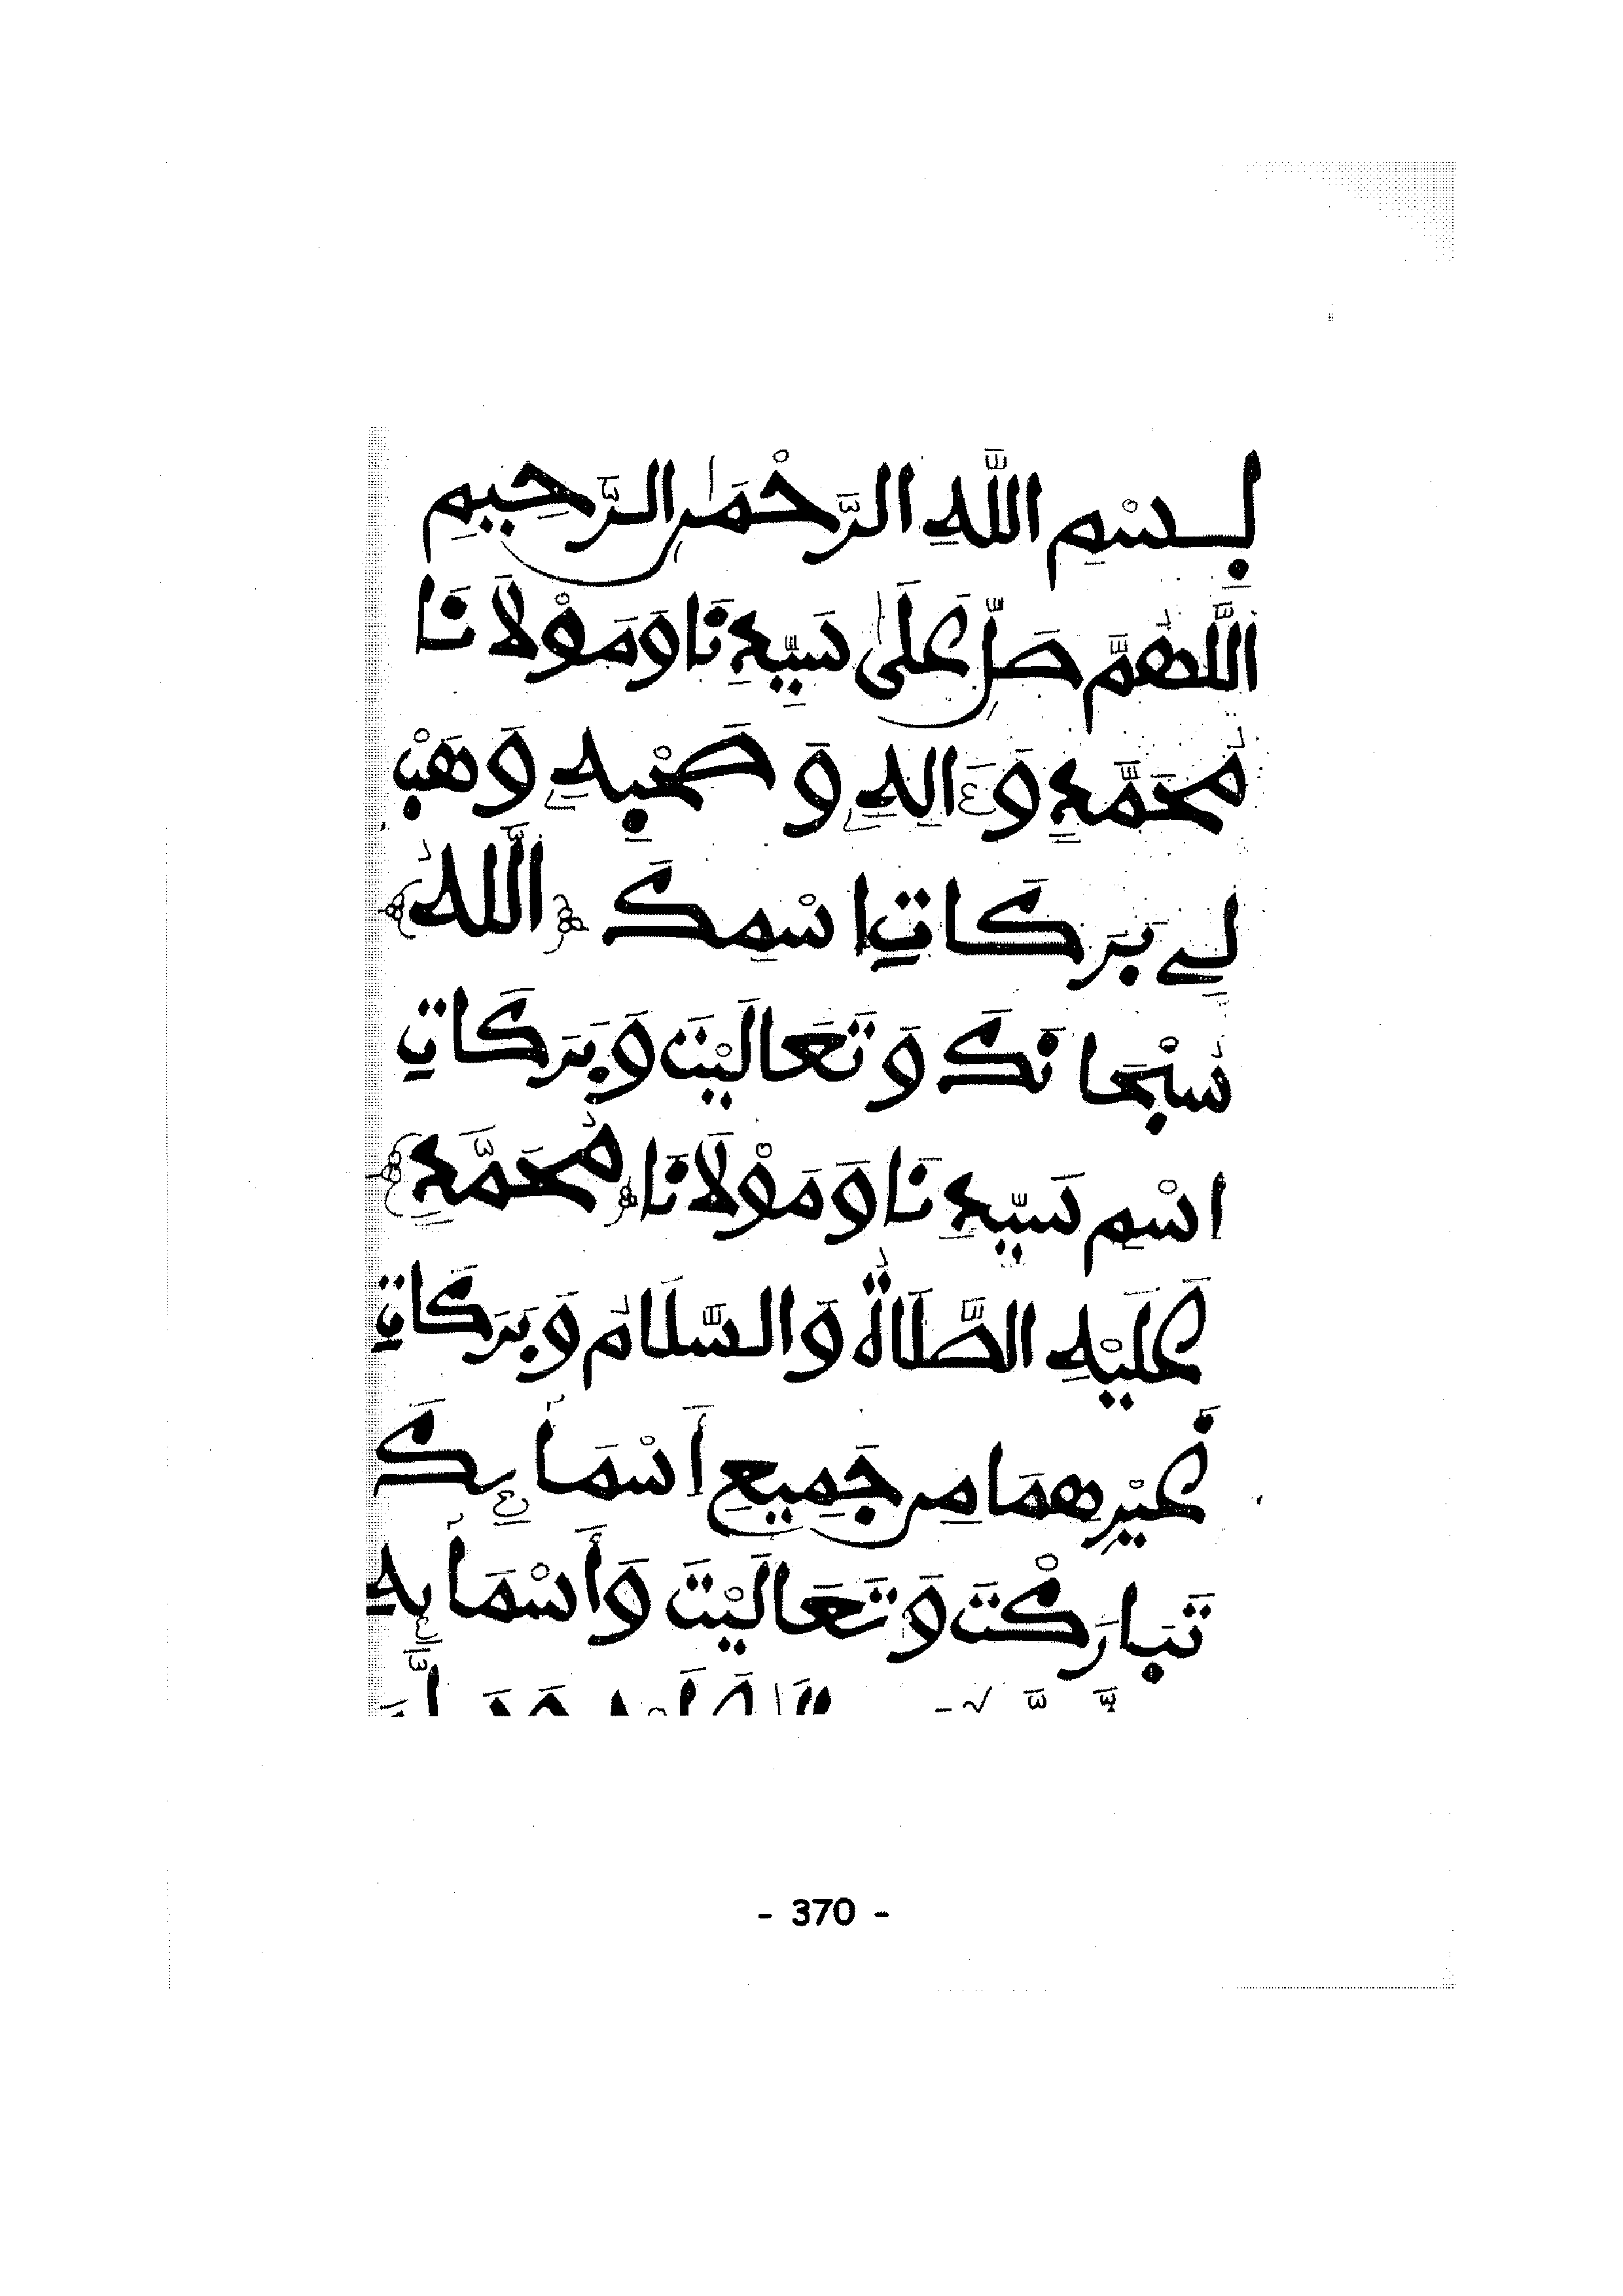 بِسْمِ اللَّهِ الرَّحْمَٰنِ الرَّحِيمِ
اللَّهُمَّ صَلِّ عَلَىٰ سَيِّدِنَا وَمَوْلَانَا
مُحَمَّدٍ وَءَالِهِ وَصَحْبِهِ وَهَبْ
لِي بَرَكَاتِ اسْمِكَ اللَّهُ
سُبْحَانَكَ وَتَعَالَيْتَ وَبَرَكَاتِ
اسْمِ سَيِّدِنَا وَمَوْلَانَا مُحَمَّدٍ
عَلَيْهِ الصَّلَاةُ وَالسَّلَامُ وَبَرَكَاتِ
غَيْرِهِمَا مِن جَمِيعِ أَسْمَائِكَ
تَبَارَكْتَ وَتَعَالَيْتَ وَأَسْمَائِهِ
- 370 -